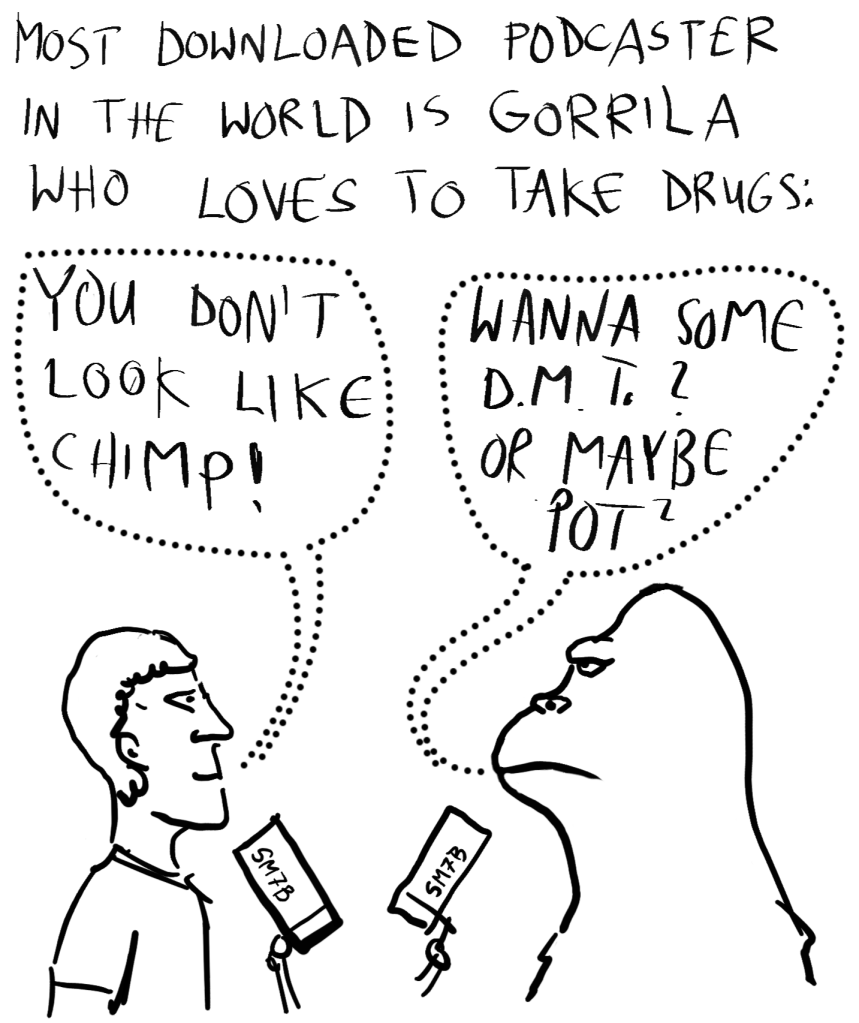 MOST DOWNLOADED PODCASTER
IN THE WORLD IS GORRILA
WHO LOVES TO TAKE DRUGS:
YOU DON'T
LOOK LIKE
CHIMP!
WANNA SOME
D.M.T.?
OR MAYBE
POT?
SM7B
SM7B